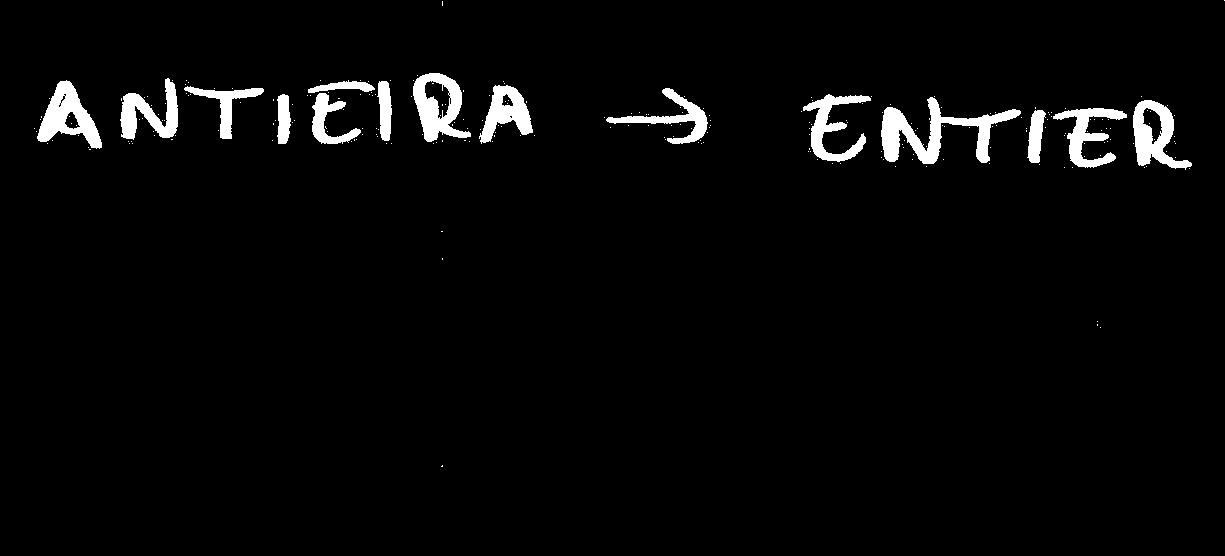 ANTIEIRA → ENTIER